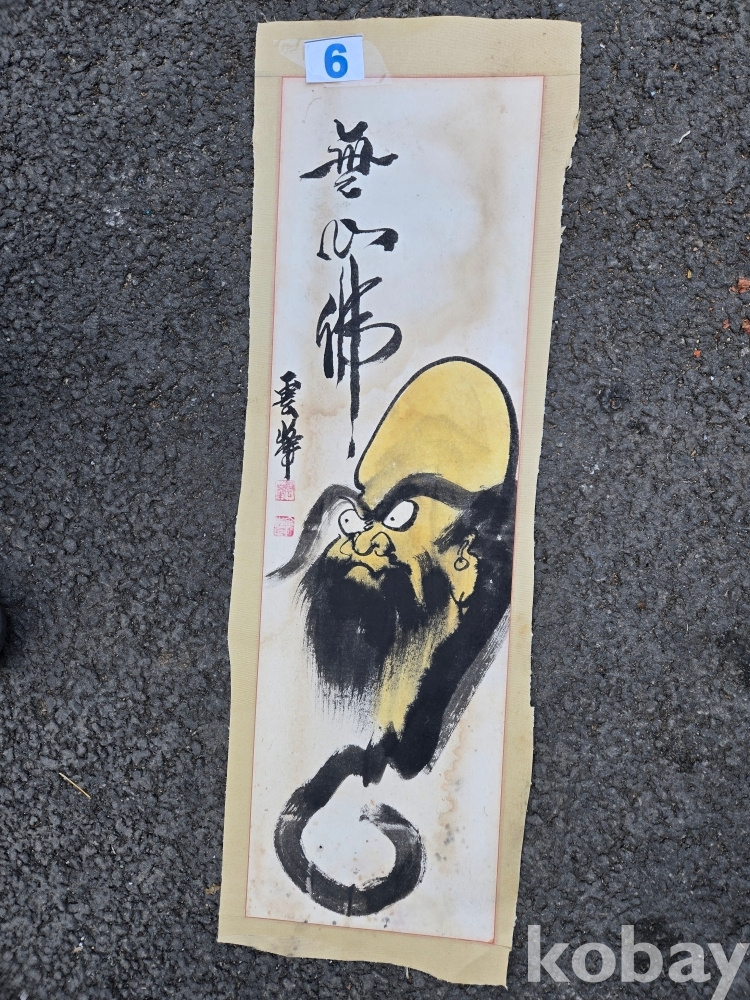 6
無心佛
雲峰
kobay